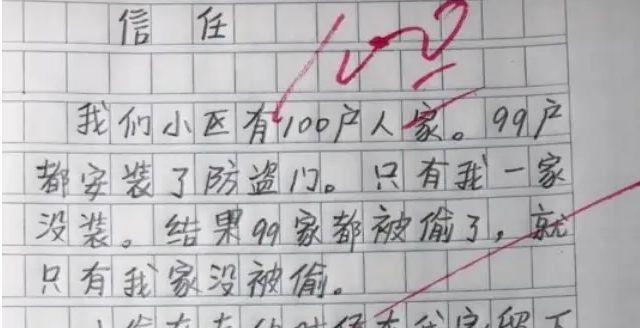 信任
我们小区有100户人家。99户
都安装了防盗门。只有我一家
没装。结果99家都被偷了，就
只有我家没被偷。